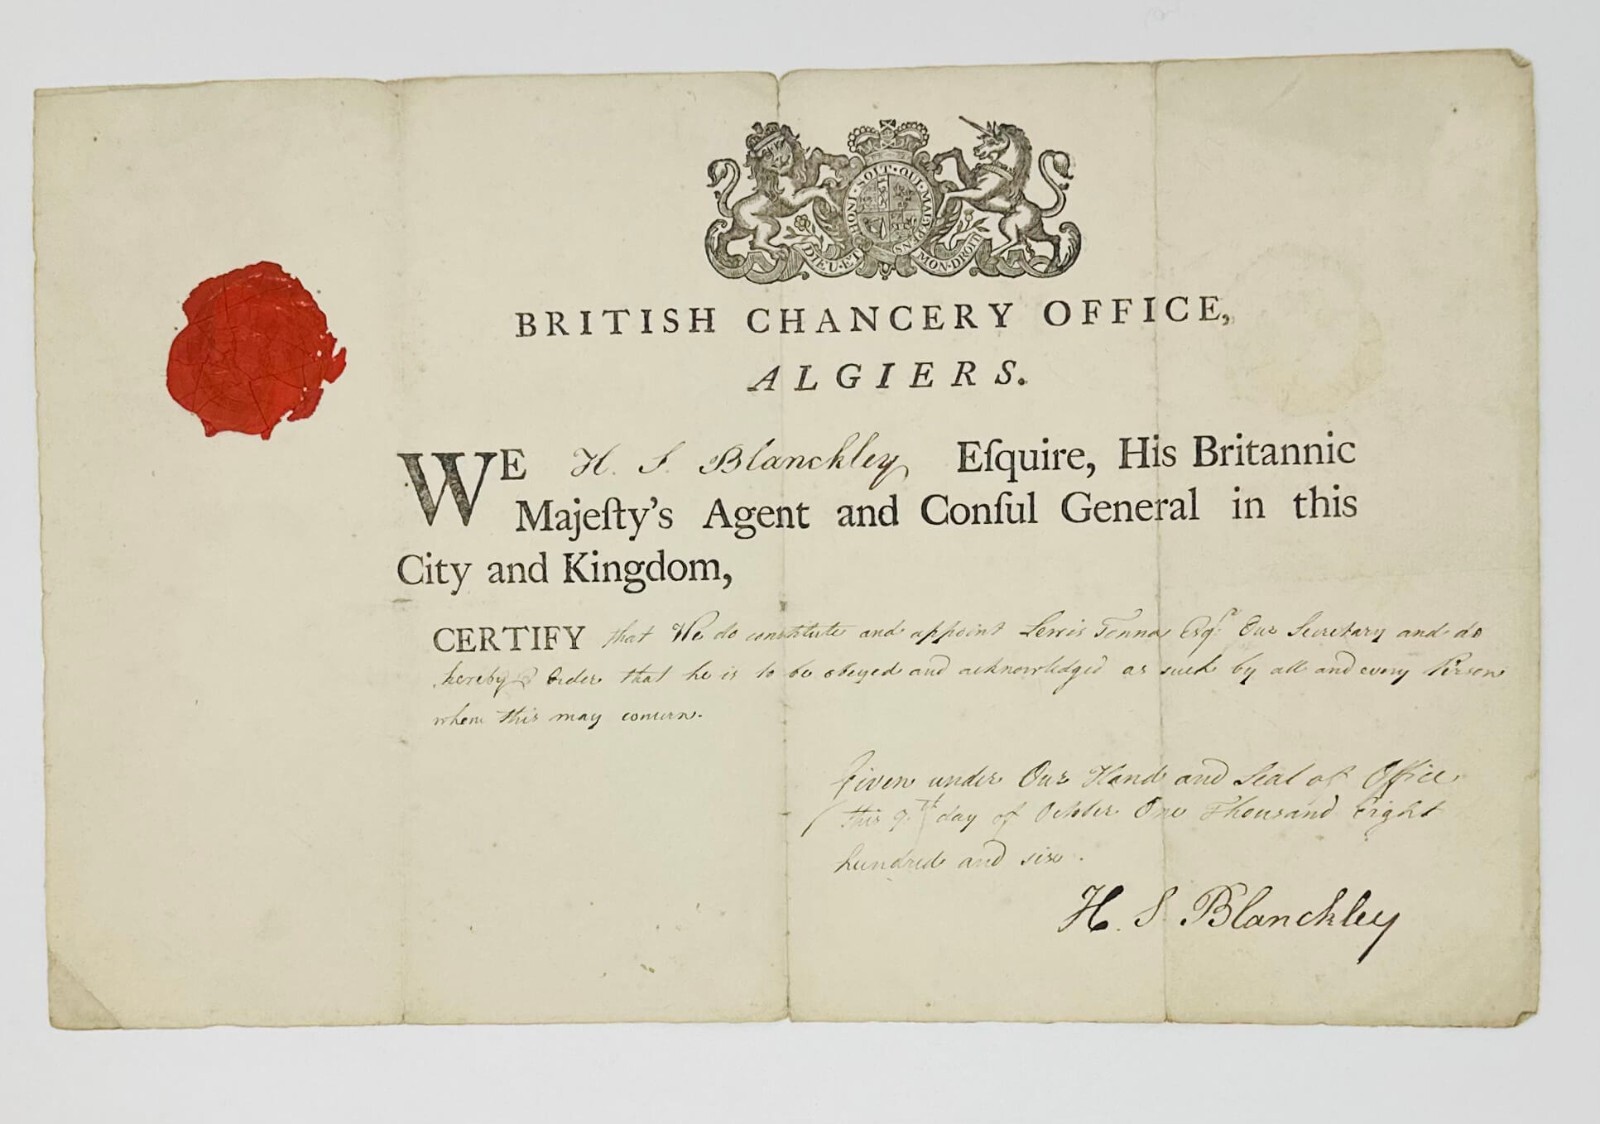 HONI · SOIT · QUI · MAL · Y · PENSE
DIEU · ET MON · DROIT
BRITISH CHANCERY OFFICE,
ALGIERS.
WE H. S. Blanckley Eſquire, His Britannic
Majeſty's Agent and Conſul General in this
City and Kingdom,
CERTIFY that We do constitute and appoint Lewis Tonna Esqr. Our Secretary and do
hereby Order that he is to be obeyed and acknowledged as such by all and every Person
whom this may concern.
Given under Our Hand and Seal of Office
this 9th day of October One Thousand Eight
hundred and six.
H. S. Blanckley